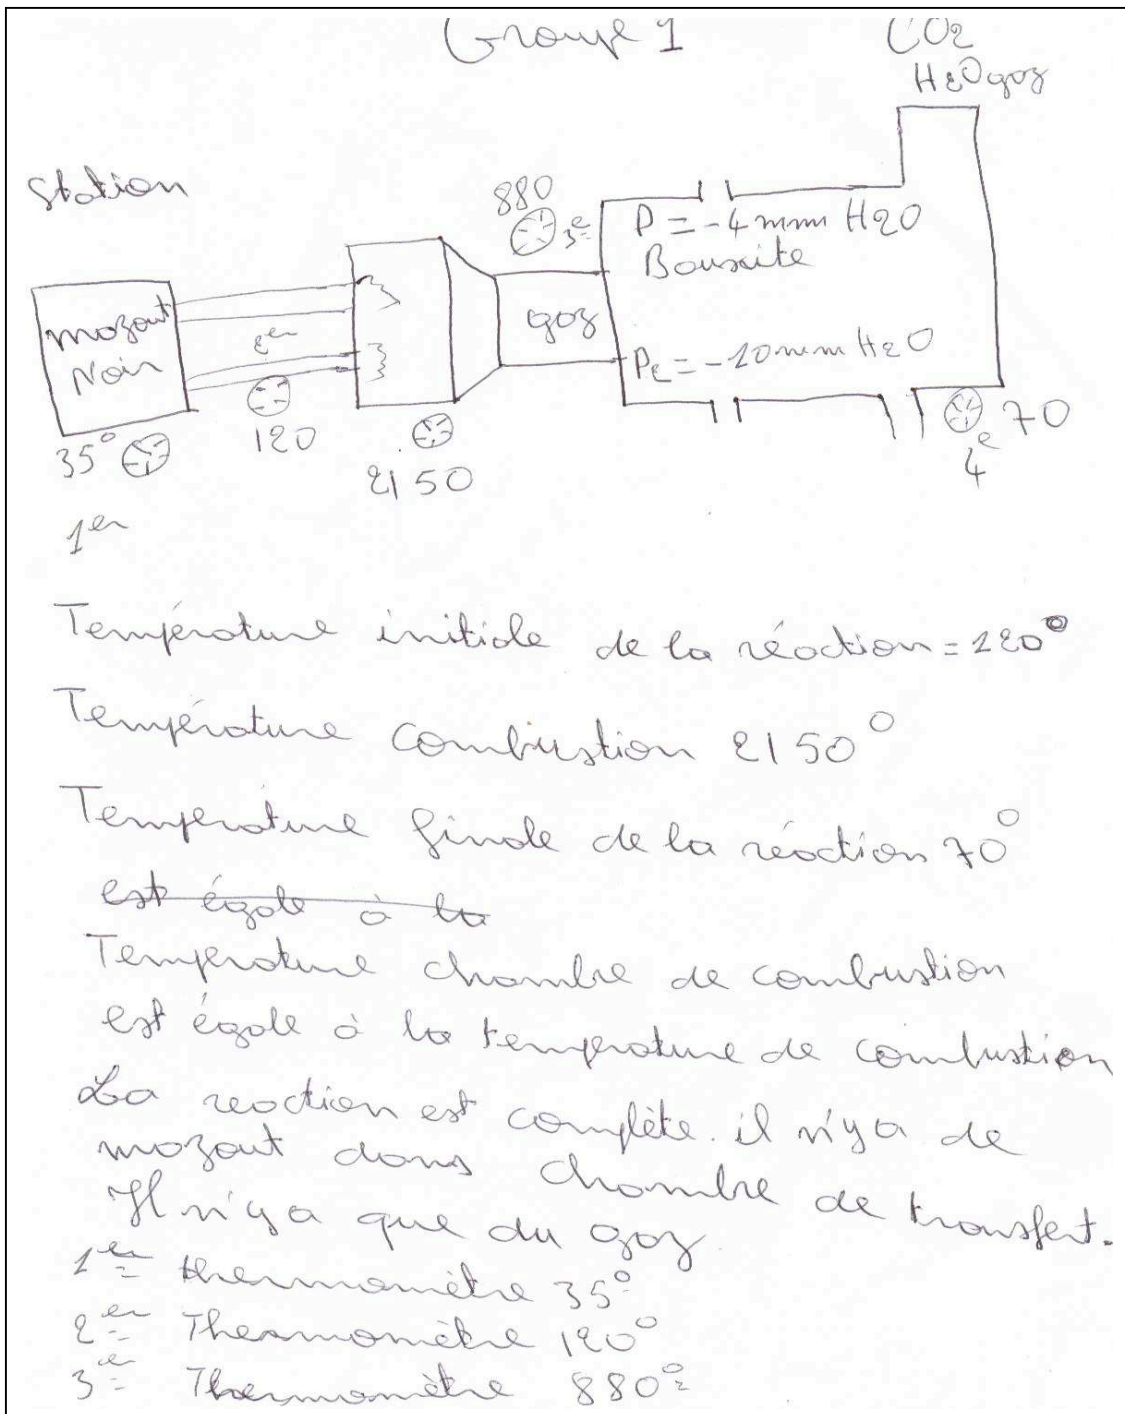 Groupe 1
CO2
H2O gaz
Station
880
3e
P = -4 mm H2O
Bauxite
mazout
Noir
2er
gaz
P2 = -10 mm H2O
35°
120
2150
70
4e
1er
Température initiale de la réaction = 120°
Température combustion 2150°
Température finale de la réaction 70°
est égale à la
Température chambre de combustion
est égale à la température de combustion
La reaction est complète. il n'y a de
mazout dans chambre de transfert.
Il n'y a que du gaz
1er thermomètre 35°
2er Thermomètre 120°
3er Thermomètre 880°